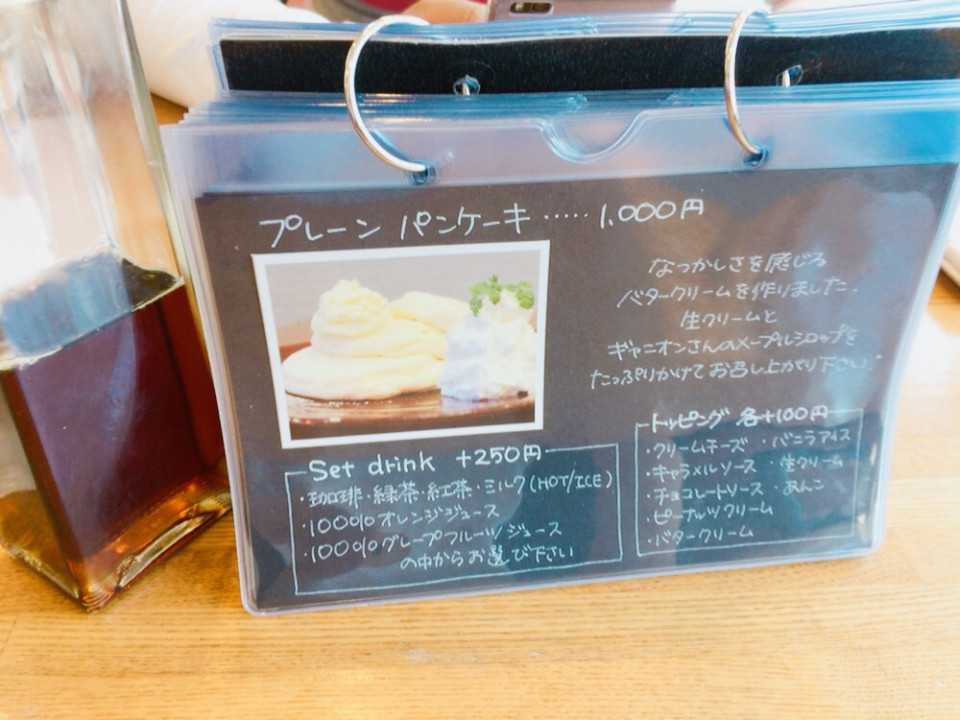 プレーン パンケーキ ····· 1,000円
なつかしさを感じる
バタークリームを作りました。
生クリームと
ギャニオンさんのメープルシロップを
たっぷりかけてお召し上がり下さい。
Set drink +250円
・珈琲・緑茶・紅茶・ミルク(HOT/ICE)
・100%オレンジジュース
・100%グレープフルーツジュース
の中からお選び下さい
トッピング 各+100円
・クリームチーズ ・バニラアイス
・キャラメルソース ・生クリーム
・チョコレートソース ・あんこ
・ピーナッツクリーム
・バタークリーム